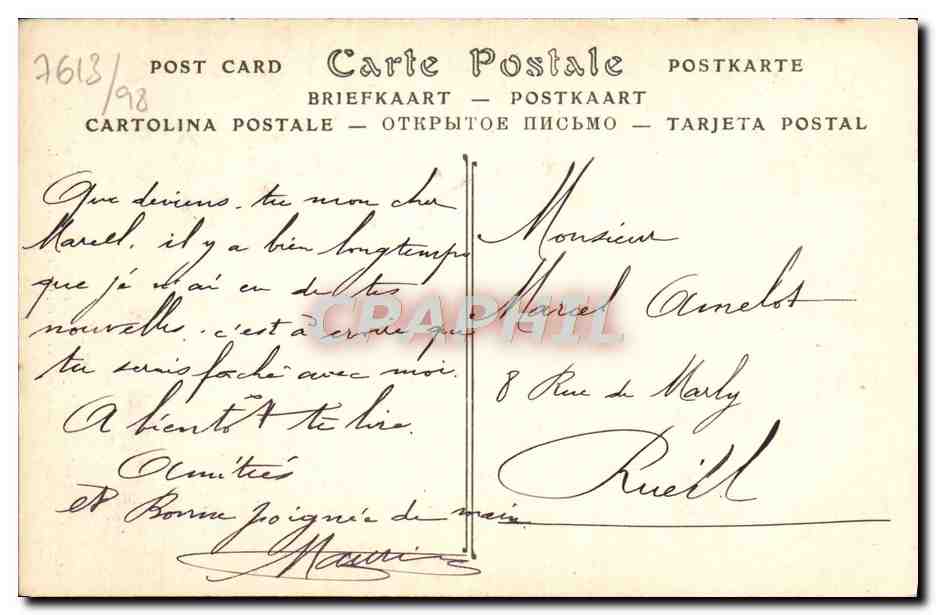 7613/98
POST CARD Carte Postale POSTKARTE
BRIEFKAART — POSTKAART
CARTOLINA POSTALE — ОТКРЫТОЕ ПИСЬМО — TARJETA POSTAL
Que deviens-tu mon cher
Marcel, il y a bien longtemps
que je n'ai eu de tes
nouvelles. c'est à croire que
tu serais faché avec moi.
A bientôt te lire.
Amitiés
et Bonne poignée de main.
Maurice
Monsieur
Marcel Amelot
8 Rue de Marly
Rueill
CPAPHIL